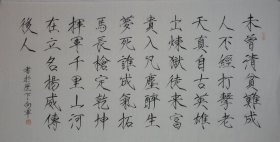 未曾清貧難成
人不經打擊老
天真自古英雄
出煉獄從來富
貴入凡塵醉生
夢死誰成氣拓
馬長槍定乾坤
揮軍千里山河
在立名揚威傳
後人